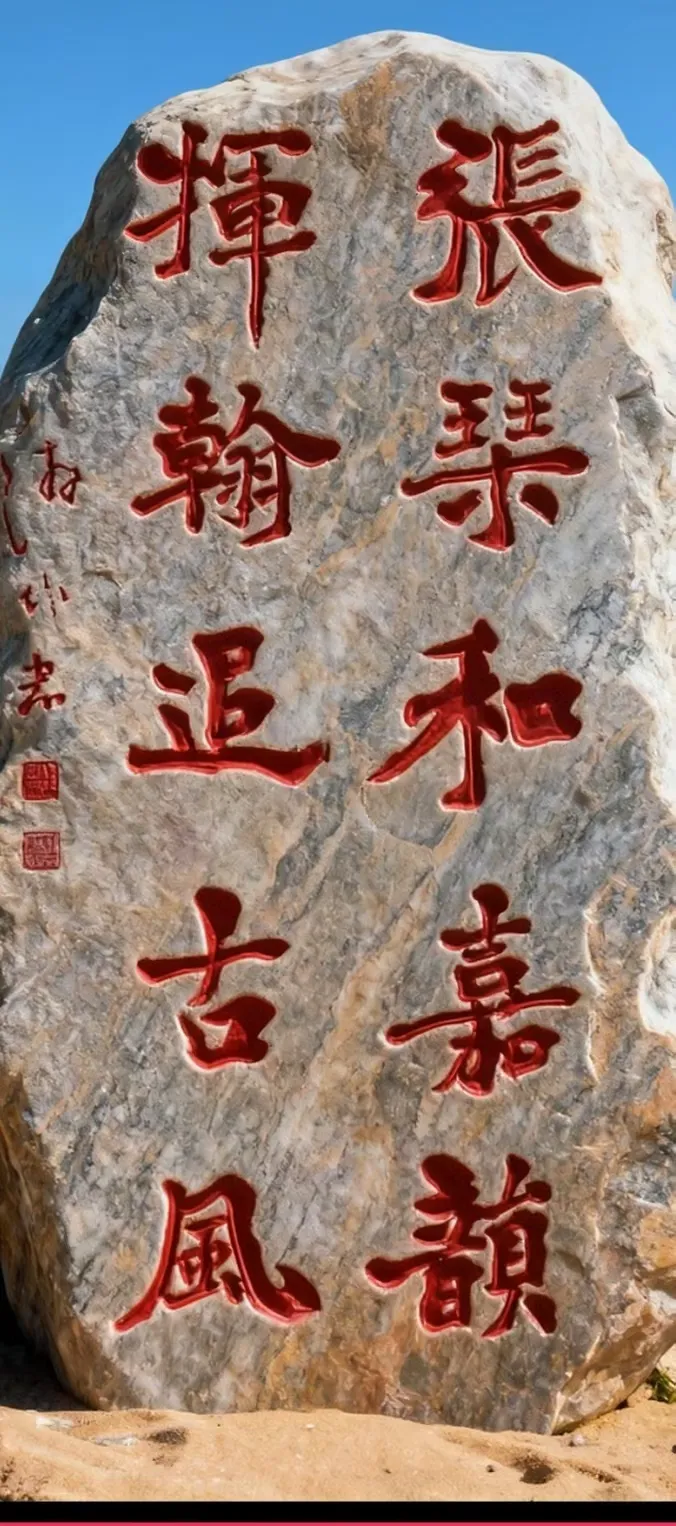 張琴和嘉韻
揮翰追古風